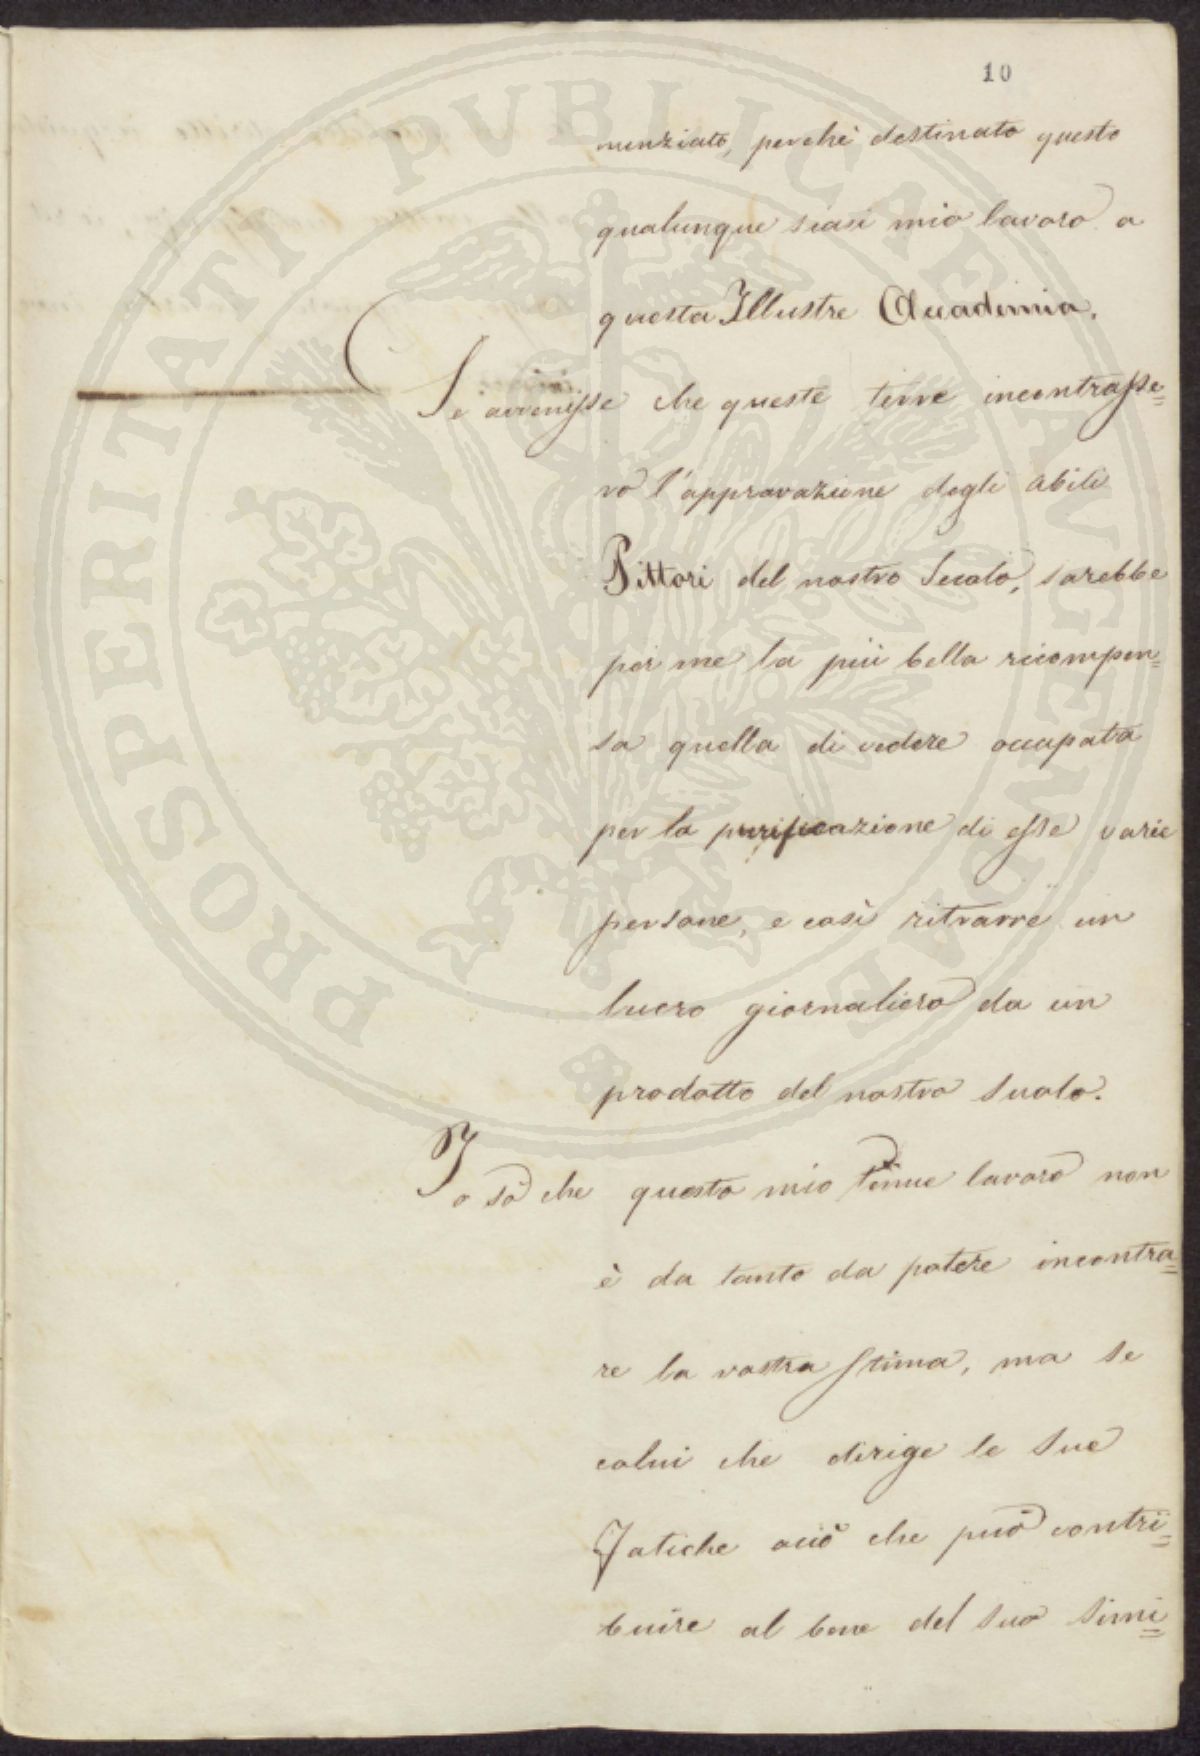 10
nunziato, perchè destinato questo
qualunque siasi mio lavoro a
questa Illustre Accademia.
Se avvenisse che queste terre incontrasse=
ro l'appravazione degli abili
Pittori del nostro Secolo, sarebbe
per me la più bella ricompen=
sa quella di vedere occupata
per la purificazione di esse varie
persone, e così ritrarre un
lucro giornaliero da un
prodotto del nostro Suolo.
Io sò che questo mio tenue lavoro non
è da tanto da potere incontra=
re la vostra Stima, ma se
colui che dirige le Sue
Fatiche acciò che può contri=
buire al bene del suo Simi=
PROSPERITATI PVBLICAE AVGENDAE